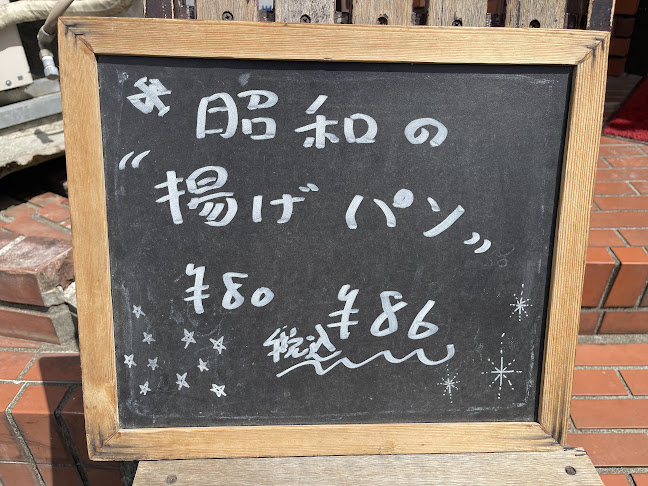 昭和の
"揚げパン"
¥80
税込¥86